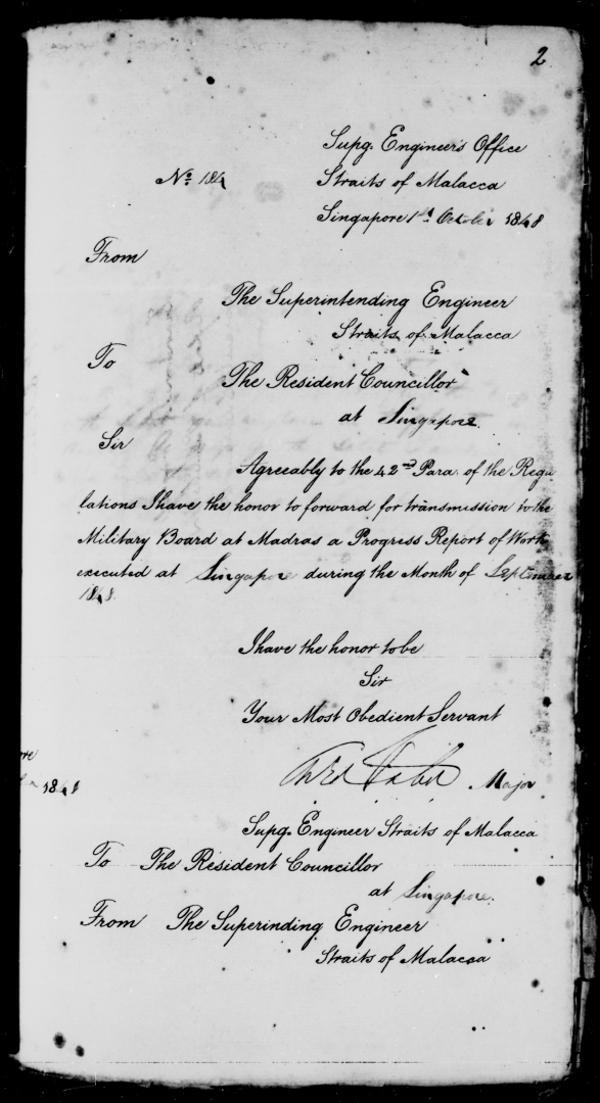 2
Supg. Engineer's Office
No. 184
Straits of Malacca
Singapore 1st October 1848
From
The Superintending Engineer
Straits of Malacca
To
The Resident Councillor
at Singapore.
Sir
Agreeably to the 42nd Para. of the Regu
lations I have the honor to forward for transmission to the
Military Board at Madras a Progress Report of Work
executed at Singapore during the Month of September
1848.
I have the honor to be
Sir
Your Most Obedient Servant
Faber Major
1848
Supg. Engineer Straits of Malacca
To The Resident Councillor
at Singapore.
From The Superinding Engineer
Straits of Malacca